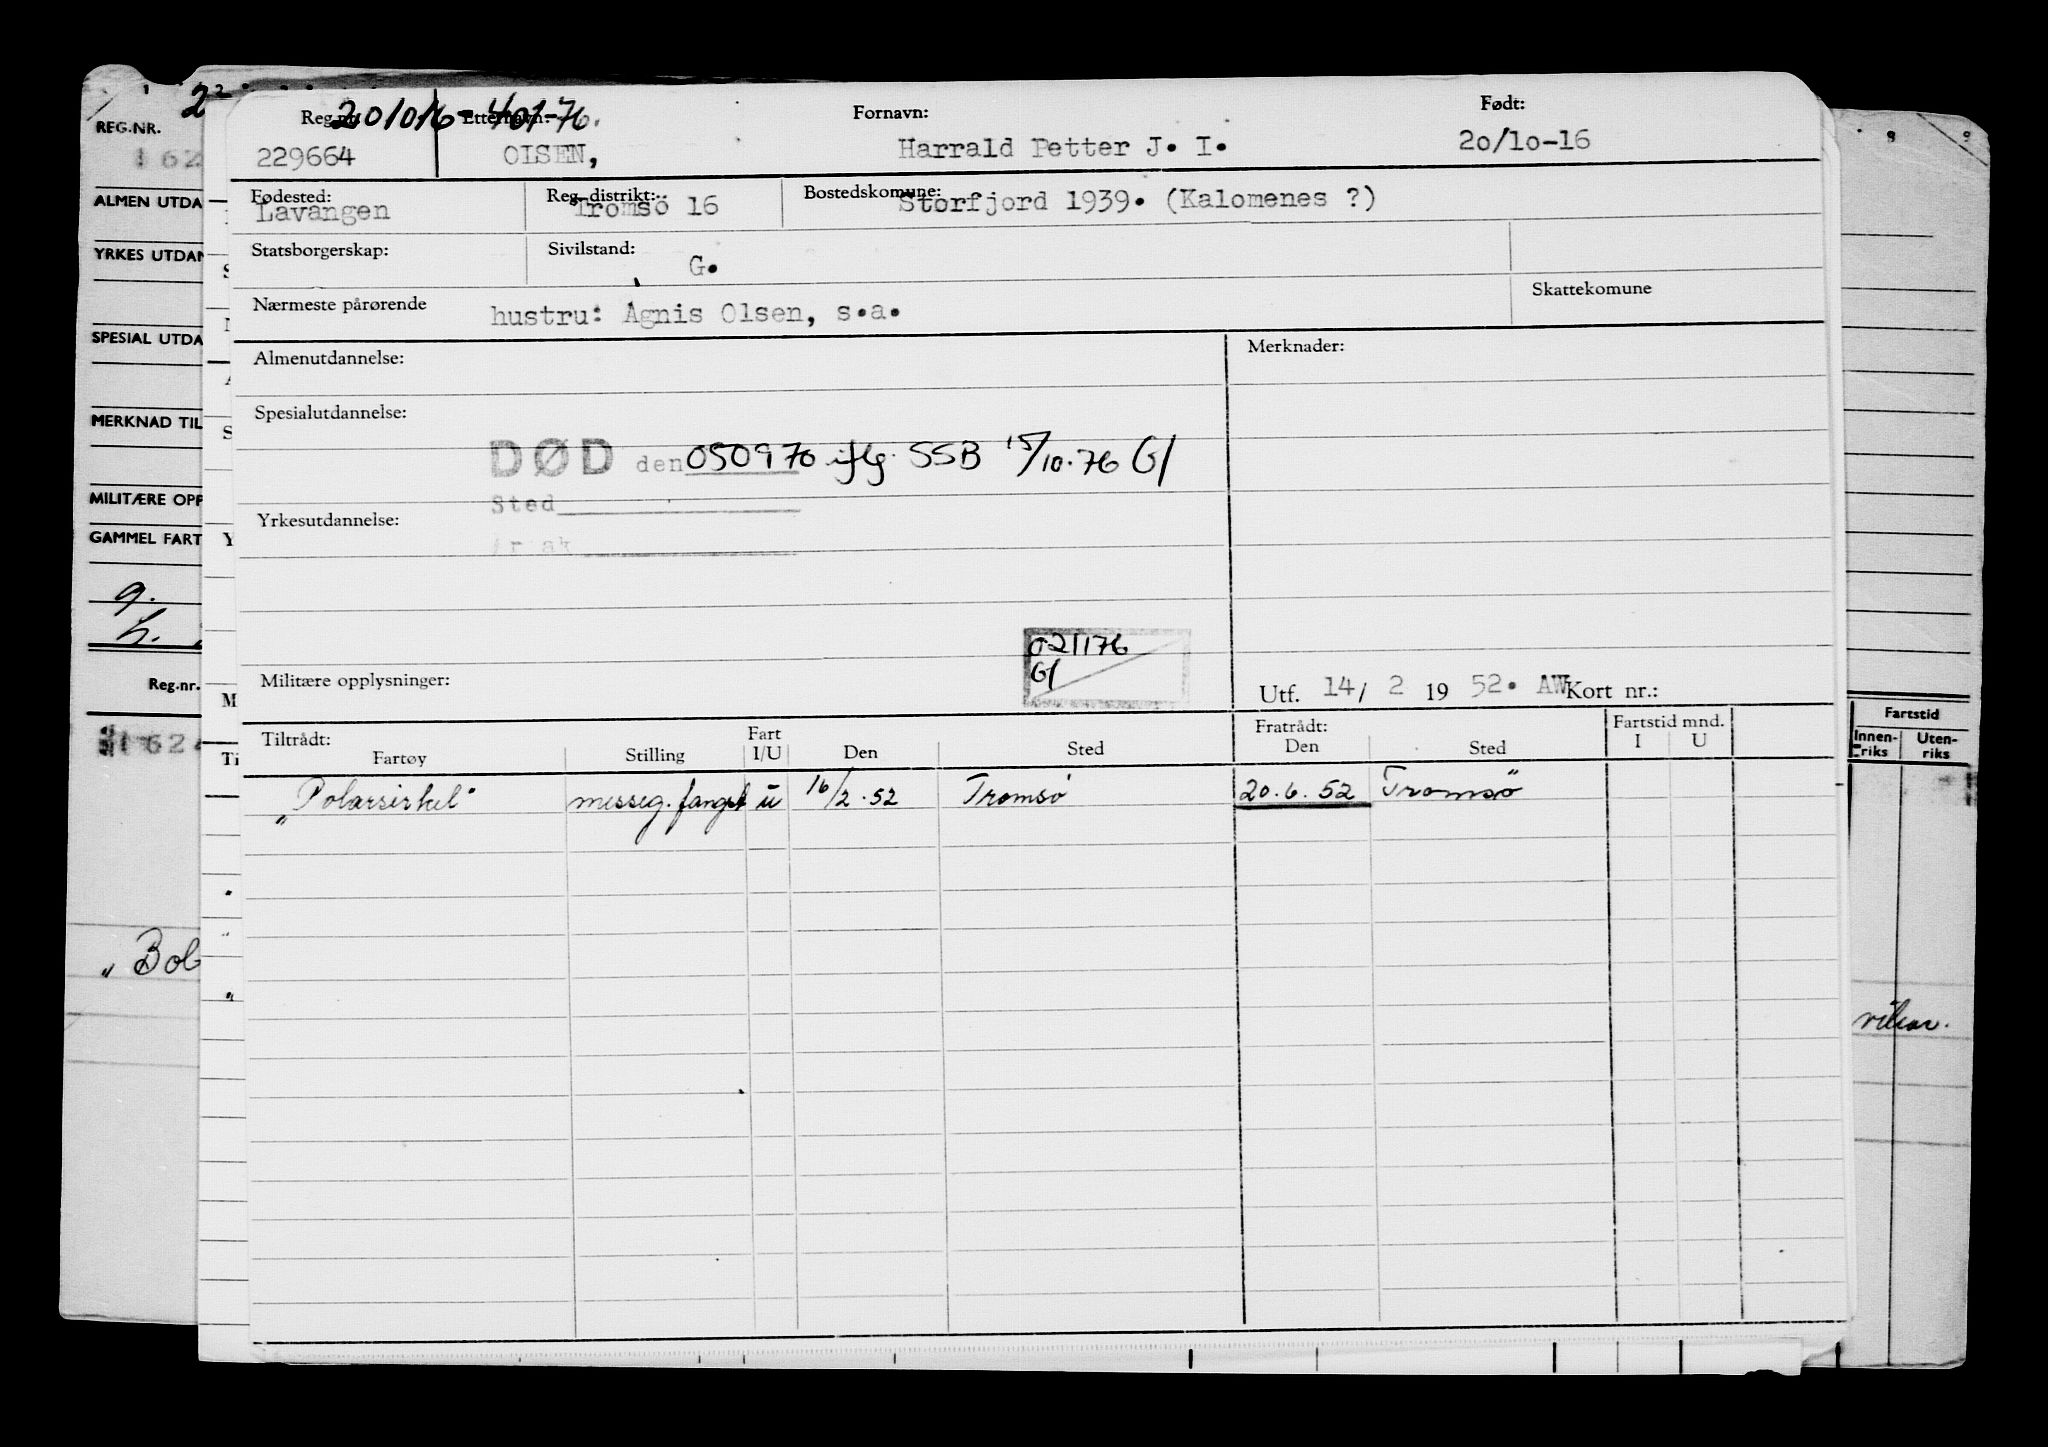 201016-40176.
Reg.nr. Etternavn: Fornavn: Født:
229664 OLSEN, Harrald Petter J. I. 20/10-16
Fødested: Reg.-distrikt: Bostedskomune:
Lavangen Tromsö 16 Storfjord 1939. (Kalomenes ?)
Statsborgerskap: Sivilstand: G.
Nærmeste pårørende hustru: Agnis Olsen, s.a. Skattekomune
Almenutdannelse: Merknader:
Spesialutdannelse:
DØD den 050970 iflg. SSB 15/10.76 G/
Sted
Yrkesutdannelse:
021176
G/
Militære opplysninger: Utf. 14/ 2 19 52. AW Kort nr.:
Tiltrådt: Fart Fratrådt: Fartstid mnd.
Fartøy Stilling I/U Den Sted Den Sted I U
"Polarsirkel" messeg. fangst u 16/2.52 Tromsö 20.6.52 Tromsö
REG.NR.
162
ALMEN UTDA
YRKES UTDAN
SPESIAL UTDA
MERKNAD TIL
MILITÆRE OPP
GAMMEL FART
g.
h.
Reg.nr.
1624
"Bol
S
M
Y
M
Ti
Fartstid
Innen-riks Uten-riks